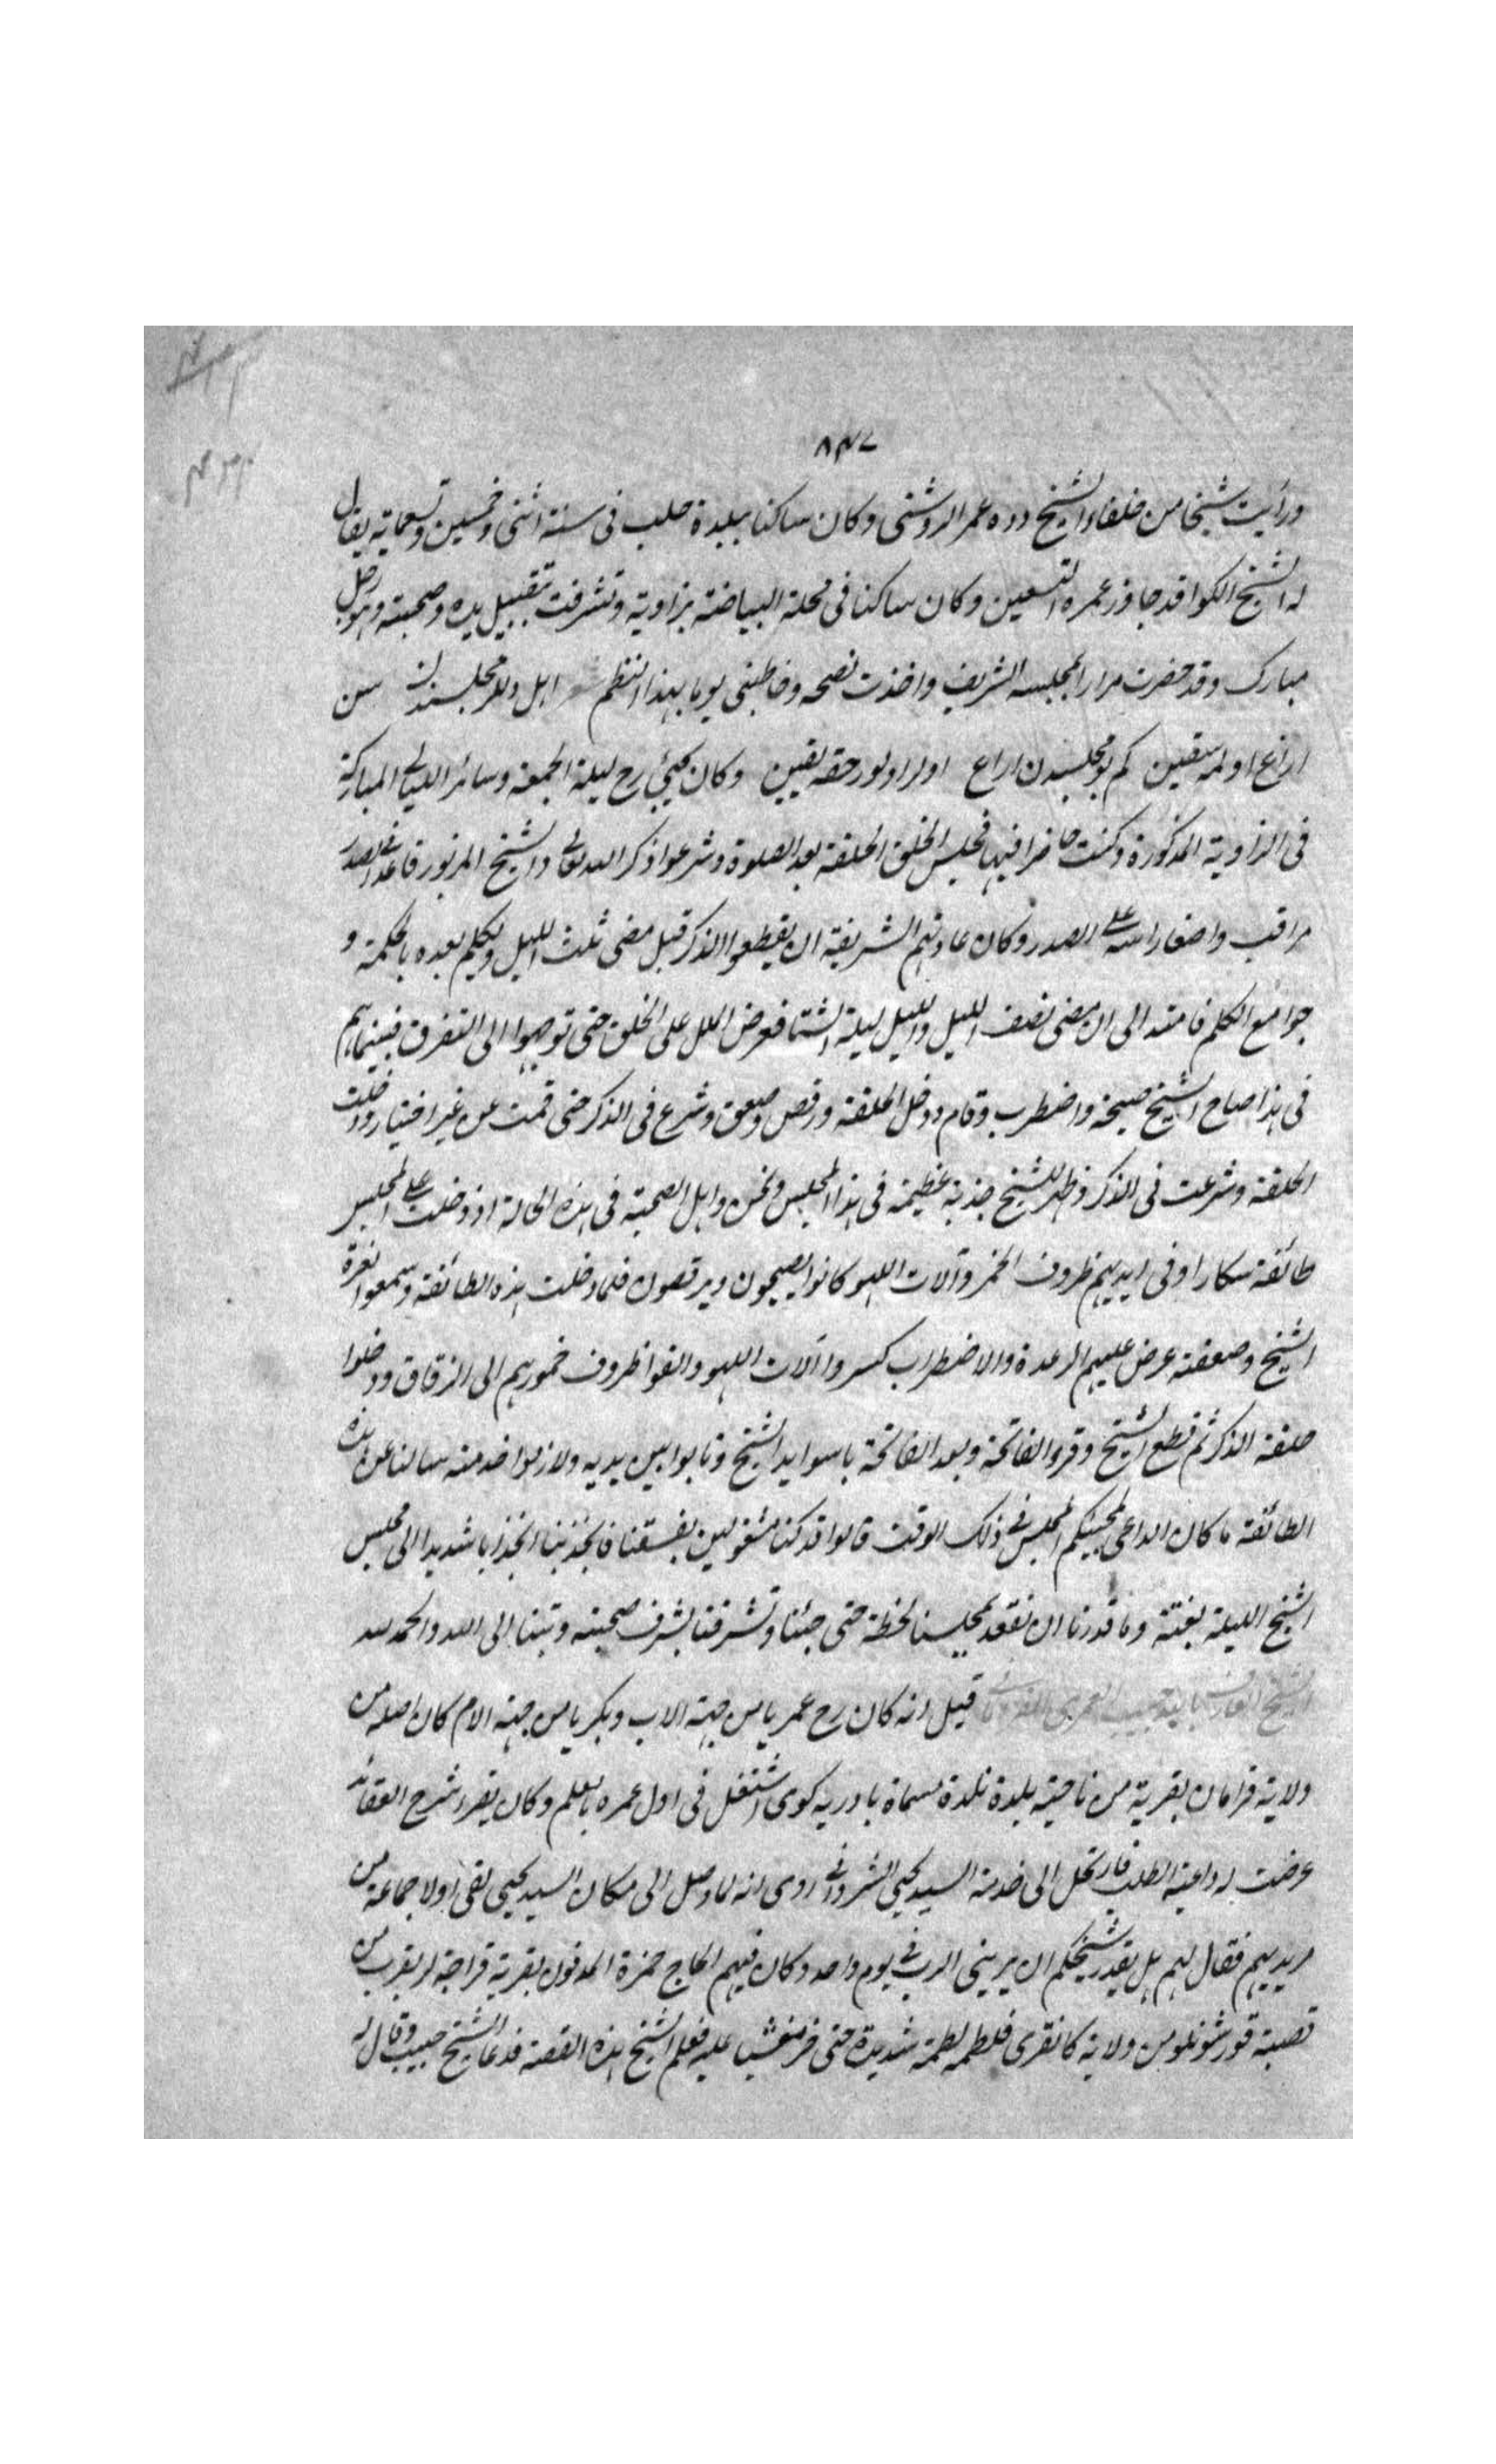 ٨٤٧
ورأيت شيخا من خلفاء الشيخ دده عمر الروشنى وكان ساكنا ببلدة حلب فى سنة اثنى وخمسين وتسعماية يقال
له الشيخ الكوا قد جاوز عمره التسعين وكان ساكنا فى محلة البياضة بزاوية وتشرفت بتقبيل يده وصحبته وهو رجل
مبارك وقد حضرت مرارا لمجلسه الشريف واخذت نصحه وخاطبنى يوما بهذا النظم شعر اهل دللر مجلسندن سن
اراغ اولمه سقين كم بو مجلسدن اراغ اولر اولور حقه يقين وكان يحيئ رح ليلة الجمعة وسائر الليالى المباركة
فى الزاوية المذكورة وكنت حاضرا فيها فجلس الخلق الحلقة بعد الصلوة وشرعوا ذكر الله تعالى والشيخ المزبور قاعد فى الصدر
مراقب واضعا راسه على الصدر وكان عادتهم الشريفة ان يقطعوا الذكر قبل مضى ثلث الليل ويكلم بعده بالحكمة و
جوامع الكلم فامتد الى ان مضى نصف الليل والليل ليلة الشتا فعرض الملل على الخلق حتى توجهوا الى التفرق فبينما هم
فى هذا صاح الشيخ صيحة واضطرب وقام ودخل الحلقة ورقص وصعق وشرع فى الذكر حتى قمت عن غير اختيار ودخلت
الحلقة وشرعت فى الذكر وظهر للشيخ جذبة عظيمة فى هذا المجلس ونحن واهل الصحبة فى هذه الحالة اذ دخلت على المجلس
طائفة سكارا وفى ايديهم ظروف الخمر وآلات اللهو كانوا يصيحون ويرقصون فلما دخلت هذه الطائفة وسمعوا نعرة
الشيخ وصعقته عرض عليهم الرعدة والاضطراب كسروا آلات اللهو والقوا ظروف خمورهم الى الزقاق ودخلوا
حلقة الذكر ثم قطع الشيخ وقرء الفاتحة وبعد الفاتحة باسوا يد الشيخ وتابوا بين يديه ولازموا خدمته سالنا عن هذه
الطائفة ما كان الداعى لمجيئكم المجلس فى ذلك الوقت قالوا قد كنا مشغولين بفسقنا فانجذبنا انجذابا شديدا الى مجلس
الشيخ الليلة بغتة وما قدرنا ان نقعد بمجلسنا لحظة حتى جئنا وتشرفنا بشرف صحبته وتبنا الى الله والحمد لله
الشيخ العارف بالله حبيب العمرى قيل انه كان رح عمريا من جهة الاب وبكريا من جهة الام كان اصله من
ولاية قرامان بقرية من ناحية بلدة نكدة مسماة باوريه كوى اشتغل فى اول عمره بالعلم وكان يقرء شرح العقائد
عرضت له داعية الطلب فارتحل الى خدمة السيد يحيى الشروانى روى انه لما وصل الى مكان السيد يحيى لقى اولا جماعة من
مريديهم فقال لهم هل يقدر شيخكم ان يرينى الرب فى يوم واحد وكان فيهم الحاج حمزة المدفون بقرية قراجه لر بقرب من
قصبة قورشونلو من ولاية كانقرى فلطمه لطمة شديدة حتى خر مغشيا عليه فعلم الشيخ هذه القصة فدعا الشيخ حبيب وقال له